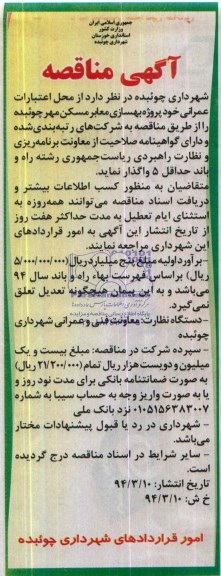 جمهوری اسلامی ایران
وزارت کشور
استانداری خوزستان
شهرداری چوئبده
آگهی مناقصه
شهرداری چوئبده در نظر دارد از محل اعتبارات
عمرانی خود پروژه بهسازی معابر مسکن مهر چوئبده
را از طریق مناقصه به شرکت‌های رتبه‌بندی شده
و دارای گواهینامه صلاحیت از معاونت برنامه‌ریزی
و نظارت راهبردی ریاست‌جمهوری رشته راه و
باند حداقل ۵ واگذار نماید.
متقاضیان به منظور کسب اطلاعات بیشتر و
دریافت اسناد مناقصه می‌توانند همه‌روزه به
استثنای ایام تعطیل به مدت حداکثر هفت روز
از تاریخ انتشار این آگهی به امور قراردادهای
این شهرداری مراجعه نمایند.
- برآورد اولیه مبلغ پنج میلیارد ریال (۵/۰۰۰/۰۰۰/۰۰۰
ریال) براساس فهرست بهاء راه و باند سال ۹۴
می‌باشد و به این پیمان هیچگونه تعدیل تعلق
نمی‌گیرد.
- دستگاه نظارت: معاونت فنی و عمرانی شهرداری
چوئبده
- سپرده شرکت در مناقصه: مبلغ بیست و یک
میلیون و دویست هزار ریال تمام (۲۱/۲۰۰/۰۰۰ ریال)
به صورت ضمانتنامه بانکی برای مدت نود روز و
یا به صورت واریز وجه به حساب سیبا به شماره
۰۱۰۵۱۵۶۳۸۳۰۰۷ نزد بانک ملی
- شهرداری در رد یا قبول پیشنهادات مختار
می‌باشد.
- سایر شرایط در اسناد مناقصه درج گردیده
است.
تاریخ انتشار: ۹۴/۳/۱۰
خ ش: ۹۴/۳/۱۰
امور قراردادهای شهرداری چوئبده